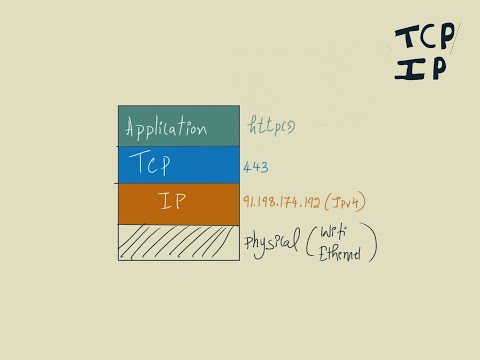 TCP/
IP
Application http(s)
TCP 443
IP 91.198.174.192 (IPv4)
physical (Wifi
Ethernet)